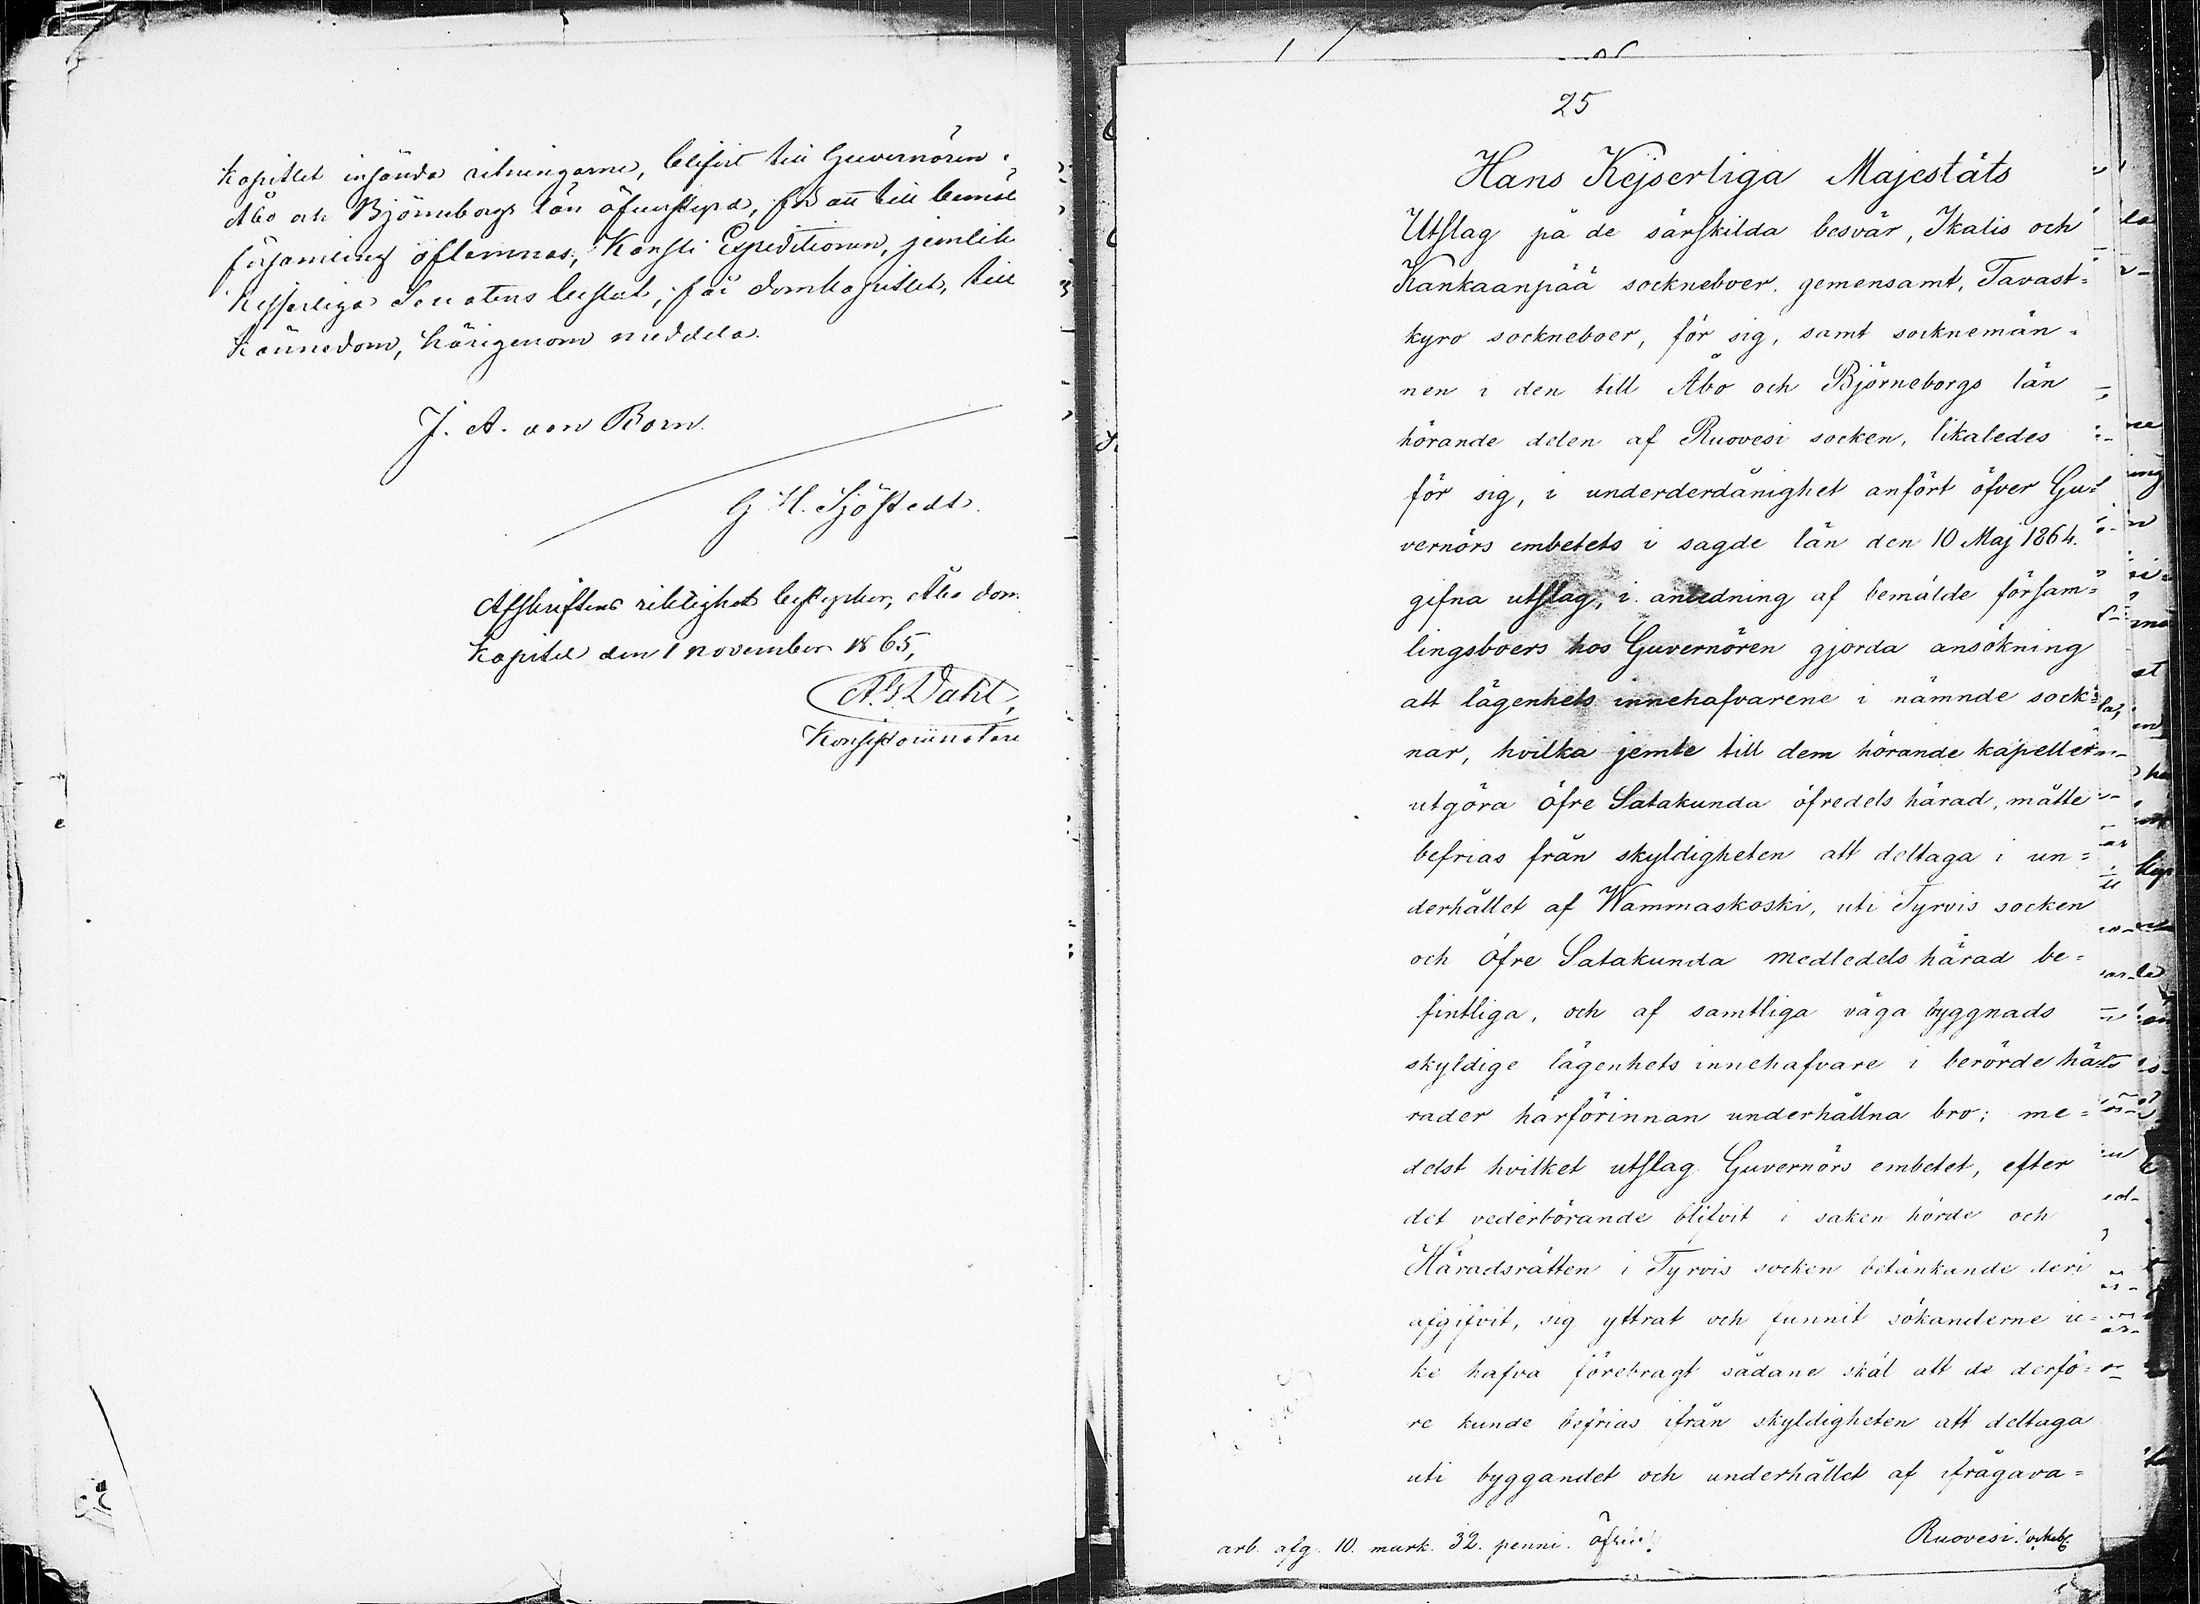 Kapitlet insända ritningarne, blifvit till Guvernören i
Åbo och Björneborgs län öfversända, för att till bemäl
församling öflemnas; Konsli Expeditionen, jemlikt
Kejserliga Senatens beslut, får domkapitlet, till
kännedom, härigenom meddela.
J. A. von Born.
G. H. Sjöstedt.
Afskriftens riktighet bestyrker, Åbo dom
Kapitel den 1 november 1865,
A. G. Dahl,
Konsistoriinotarie
25
Hans Kejserliga Majestäts
Utslag på de särskilda besvär, Ikalis och
Kankaanpää sockneboer, gemensamt, Tavast=
kyro sockneboer, för sig, samt socknemän=
nen i den till Åbo och Björneborgs län
hörande delen af Ruovesi socken, likaledes
för sig, i underderdånighet anfört öfver Gu=
vernörs embetets i sagde län den 10 Maj 1864.
gifna utslag, i anledning af bemälde försam=
lingsboers hos Guvernören gjorda ansökning
att lägenhets innehafvarene i nämnde sock=
nar, hvilka jemte till dem hörande kapeller
utgöra öfre Satakunda öfredels härad, måtte
befrias från skyldigheten att deltaga i un=
derhållet af Wammaskoski, uti Tyrvis socken
och öfre Satakunda medledels härad be=
fintliga, och af samtliga väga byggnads
skyldige lägenhets innehafvare i berörde hä=
rader härförinnan underhållna bro; me=
delst hvilket utslag Guvernörs embetet, efter
det vederbörande blifvit i saken hörde och
Häradsrätten i Tyrvis socken betänkande deri
afgifvit, sig yttrat och funnit sökanderne ic=
ke hafva förebragt sådane skäl att de derfö=
re kunde befrias ifrån skyldigheten att deltaga
uti byggandet och underhållet af ifrågava=
arb. afg. 10. mark. 32. penni.
Ruovesi